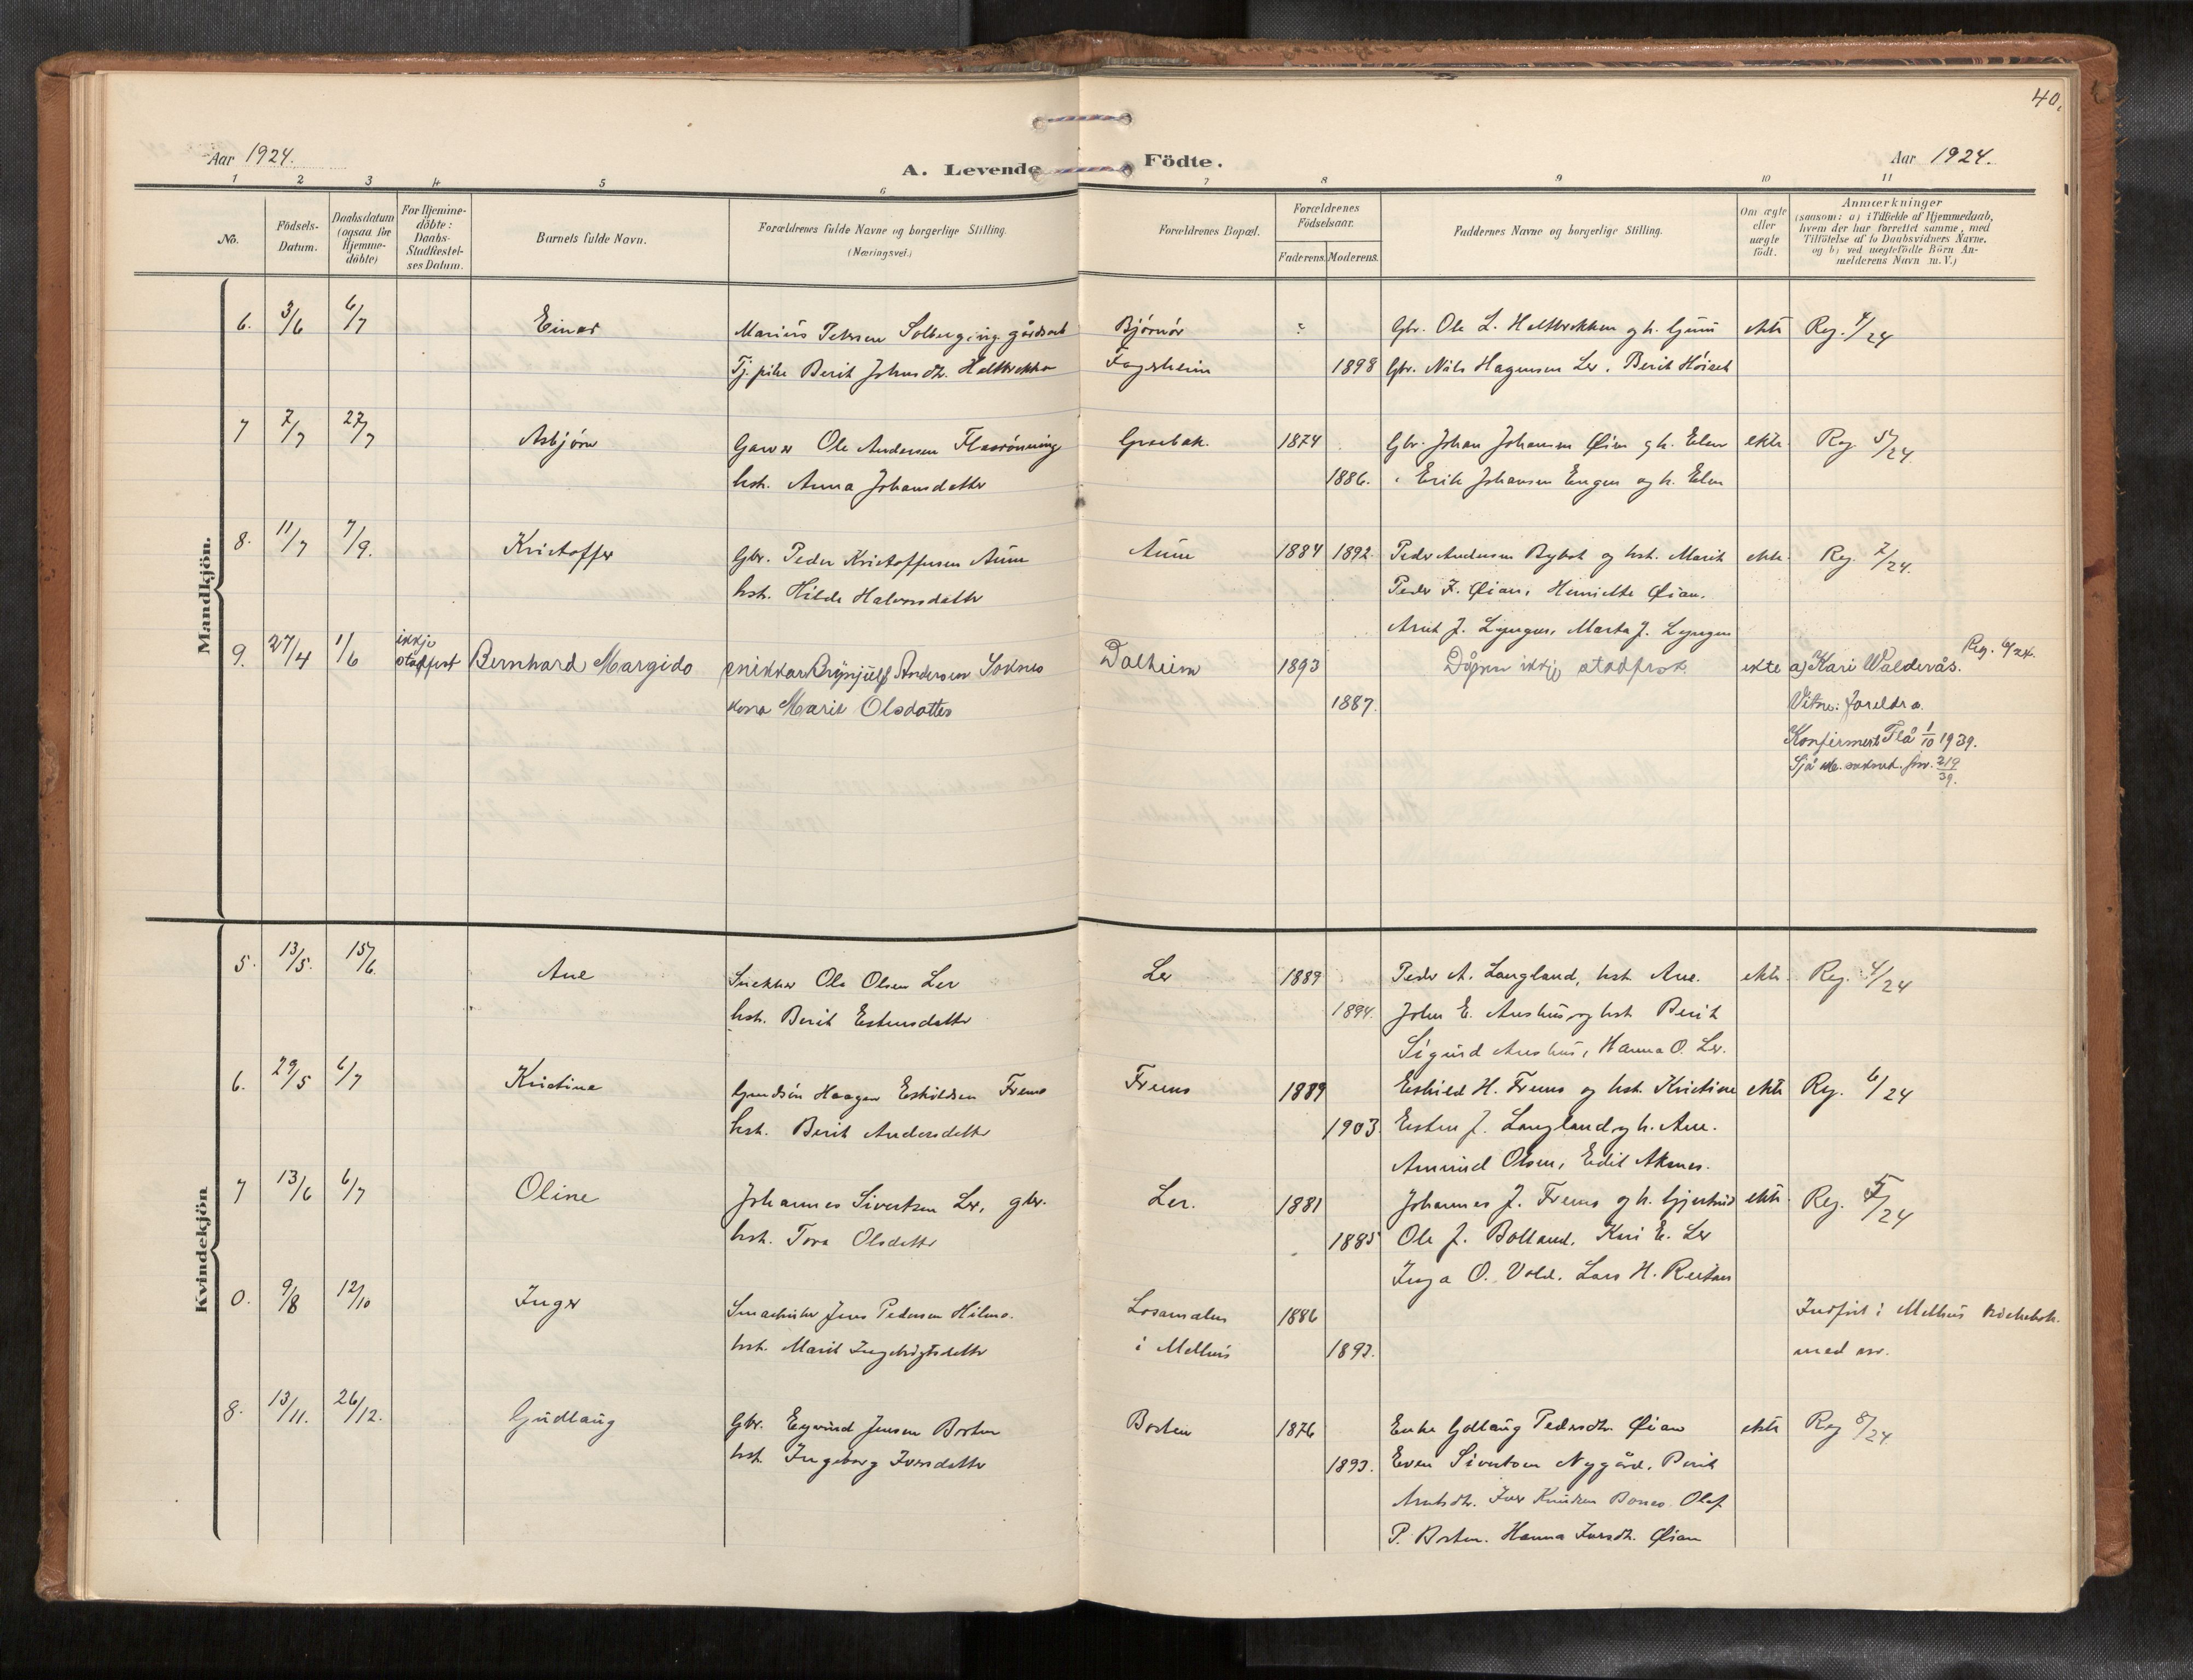 40.
Aar 1924.
A. Levende Födte.
Aar 1924.
1 2 3 4 5 6 7 8 9 10 11
No.
Födsels-Datum.
Daabsdatum (ogsaa for Hjemme-döbte)
For Hjemme-döbte: Daabs-Stadfæstel-ses Datum.
Barnets fulde Navn.
Forældrenes fulde Navne og borgerlige Stilling.
(Næringsvei.)
Forældrenes Bopæl.
Forældrenes Födselsaar.
Faderens. Moderens.
Faddernes Navne og borgerlige Stilling.
Om ægte eller uægte födt.
Anmærkninger
(saasom: a) i Tilfælde af Hjemmedaab, hvem der har forrettet samme, med Tilföielse af to Daabsvidners Navne, og b) ved uægtefödte Börn An-melderens Navn m. V.)
Mandkjön.
6. 3/6 6/7 Einar Marius Petersen Solberg, gårdsarb Bjórnór ? Gbr. Ole L. Heltbrekken og h. ekte Reg. 4/24
Tj. pike Berit Johnsdtr. Fagerheim 1898 Gbr. Nils Hagensen Ler. Berit
7 7/7 27/7 Asbjørn Garver Ole Andersen Flaarónning 1874 Gbr. Johan Johansen Øien og h. Elen ekte. Reg 5/24.
hst. Anna Johansdatter 1886. " Erik Johansen Engen og h. Elen
8. 11/7 7/9. Kristoffer Gbr. Peder Kristoffersen Aune Aune 1884 1892. Peder Andersen og hst. Marit ekte. Reg. 7/24.
hst. Hilde Halvorsdatter Peder F. Øian, Henriette Øian.
Arnt J. Lyngen, Marta J. Lyngen
9. 27/4 1/6 ikkje stadfest Bernhard Margido snikkar Brynjulf Andersen Soknes Dalheim 1893 Dåpen ikkje stadfest. ekte a) Kari Walderås. Reg. 6/24.
kona Marit Olsdotter 1887. Vitne: foreldra.
Konfirmert Flå 1/10 1939.
219/39.
Kvindekjön
5. 13/5. 15/6. Ane Snekker Ole Olsen Ler Ler 1889 Peder A. Langland, hst. Ane. ekte. Reg. 4/24
hst. Berit Estensdatter 1894. John E. Aushus og hst Berit
Sigurd Aushus, Hanna O. Ler.
6. 29/5 6/7 Kristine Haagen Eskildsen Frems Frems 1889 Eskild H. Frems og hst. Kristine ekte Reg. 6/24
hst. Berit Andersdatter 1903. Esten J. Langland og h. Ane.
Amund Olsen, Edit
7 13/6 6/7 Oline Johannes Sivertsen Ler, gbr. Ler. 1881 Johannes J. Frems og h. Gjertrud ekte. Reg. 5/24
hst. Tora Olsdatter 1885 Ole J. Bolland. Kari E. Ler
Inga O. Vold. Lars H. Reitan
0. 9/8 12/10 Inger Jens Pedersen Hilmo. 1886 Indført i Melhus kirkebok
hst. Marit Ingebrigtsdatter i Melhus 1893. med nr.
8. 13/11. 26/12. Gudlaug Gbr. Eyvind Jensen Borten Borten 1876 Enke Gollaug Pedersdtr. Øian ekte Reg 8/24
hst. Ingeborg Iversdatter 1893. Even Sivertsen Nygård. Berit
Arntsdtr. Iver Knudsen Olaf
P. Borten. Hanna Iversdtr. Øian